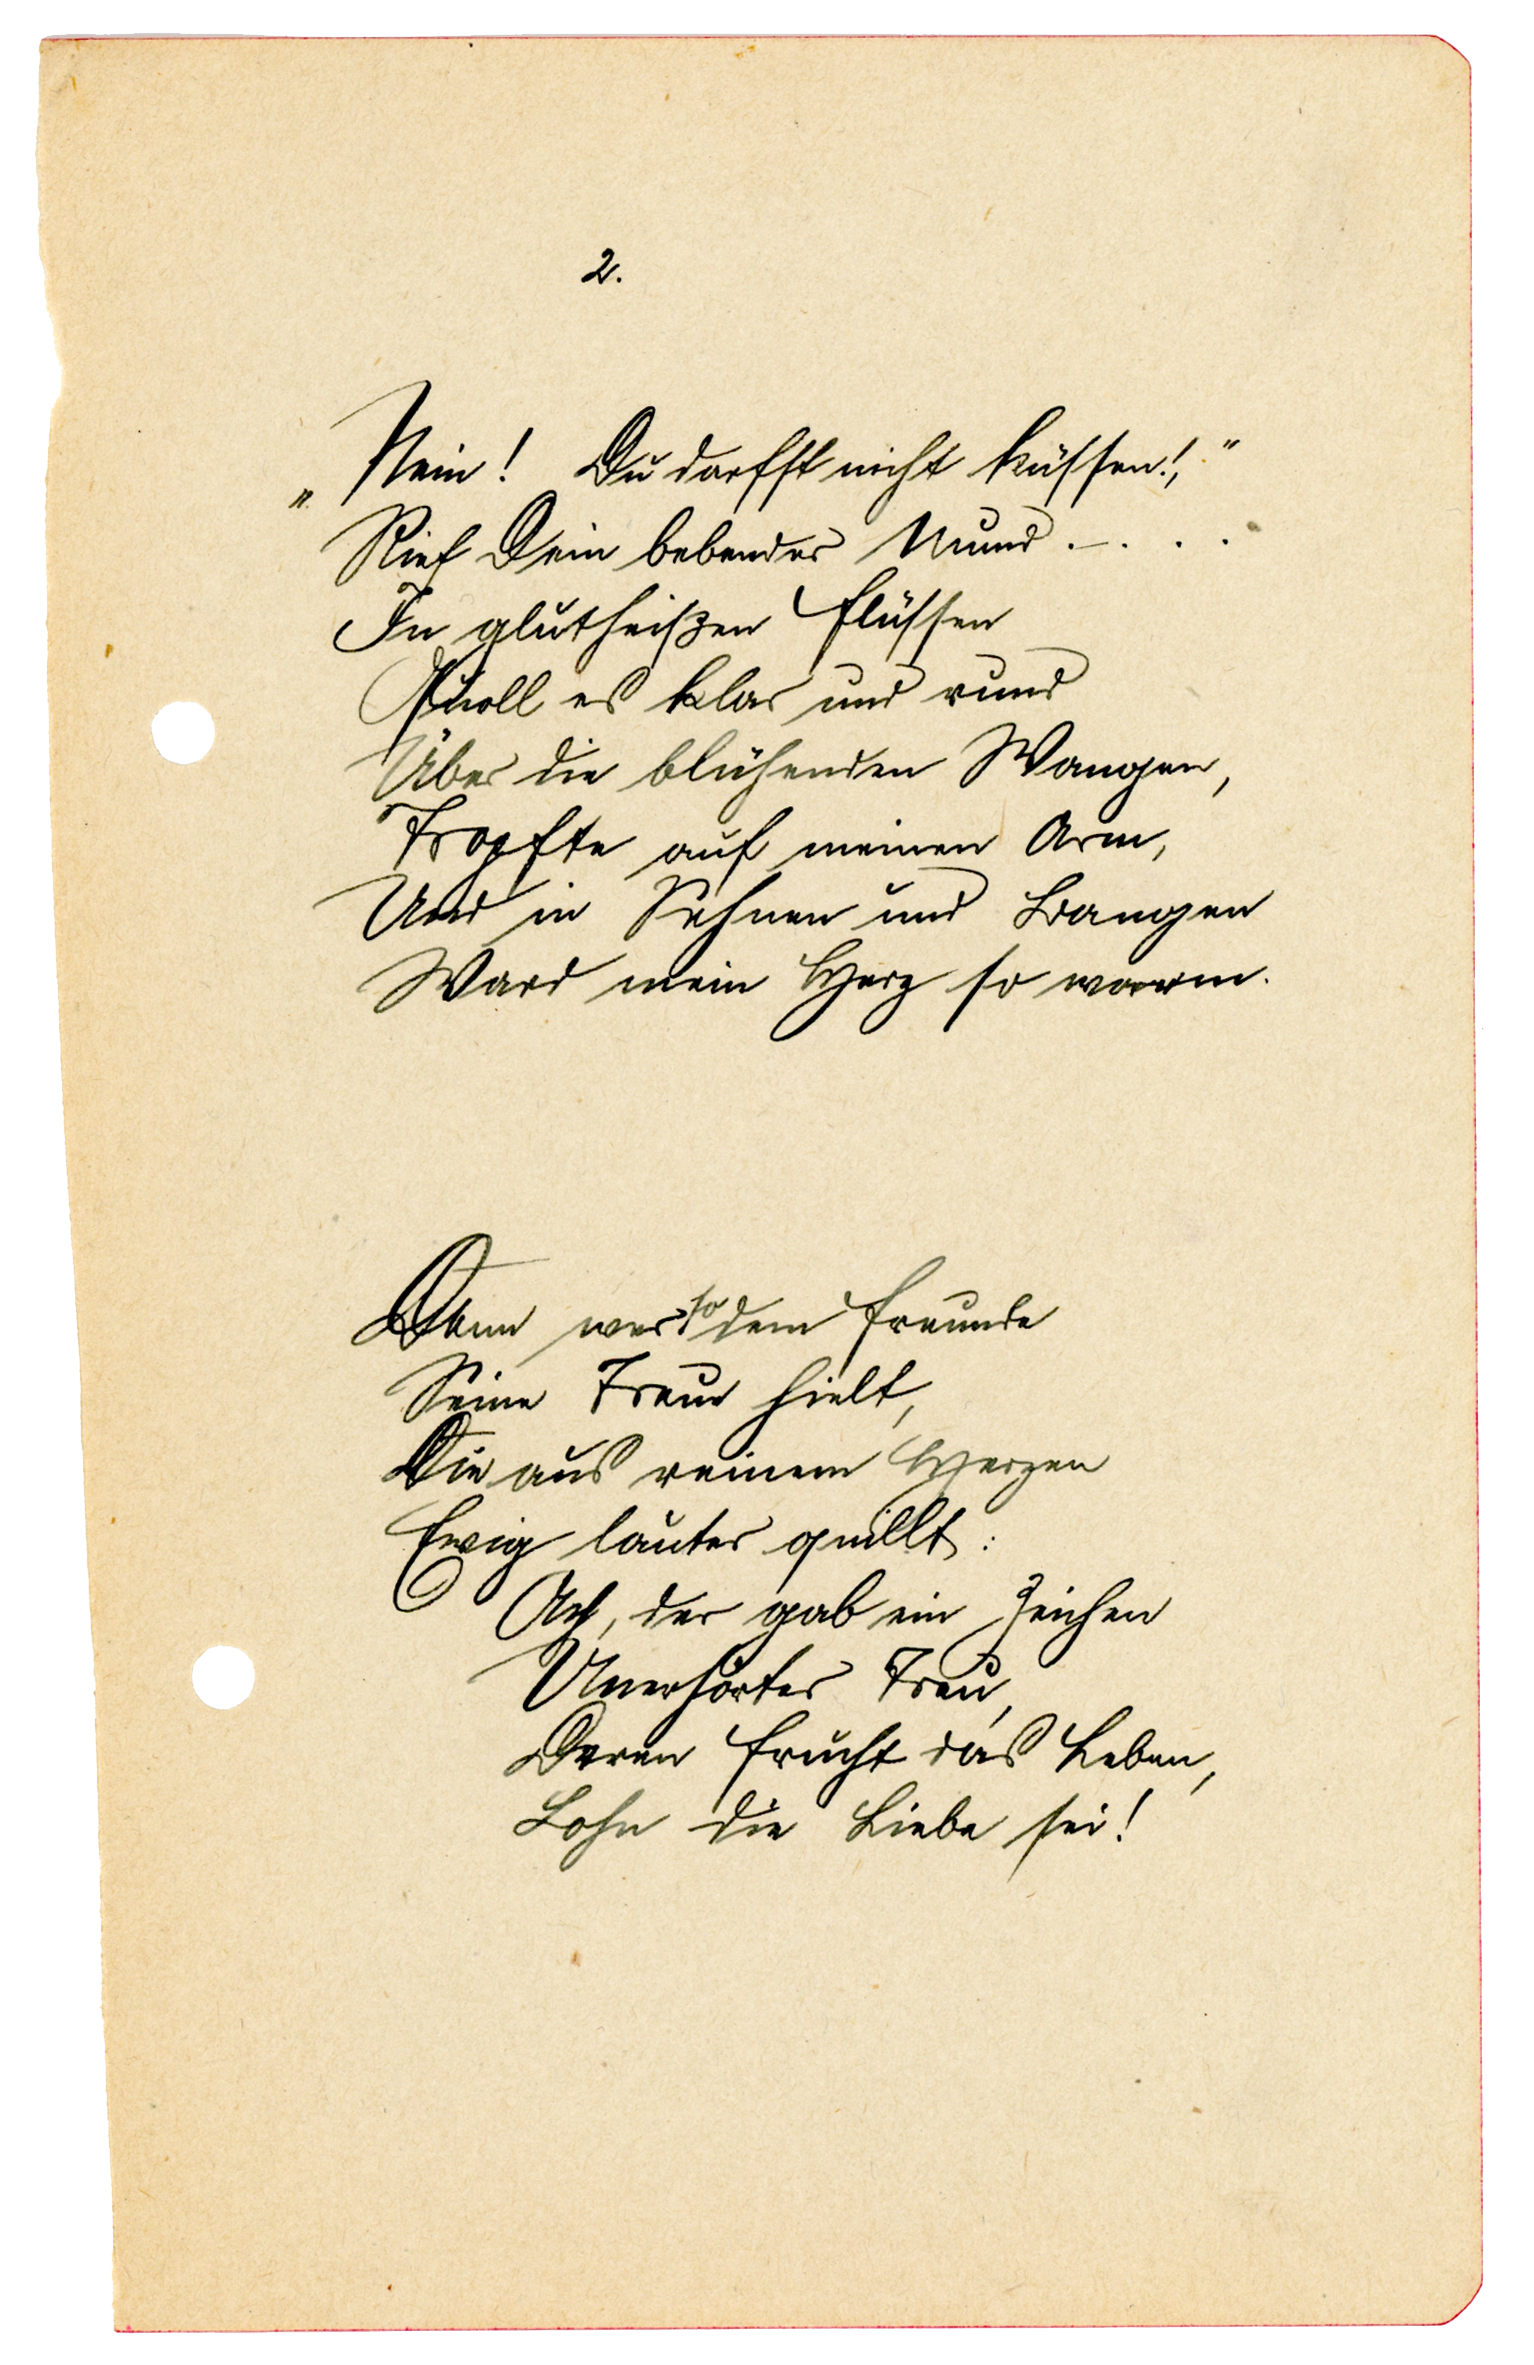 2.
„Nein! Du darfst nicht küssen!,"
Rief Dein bebender Mund . – . . .
In glutheißen Flüssen
Quoll es klar und rund
Über die blühenden Wangen,
Tropfte auf meinen Arm,
Und in Sehnen und Bangen
Ward mein Herz so warm.
Denn wer so dem Freunde
Seine Treue hielt,
Die aus reinem Herzen
Ewig lauter quillt:
Ach, der gab ein Zeichen
Unerhörter Treu,
Deren Frucht das Leben,
Lohn die Liebe sei!